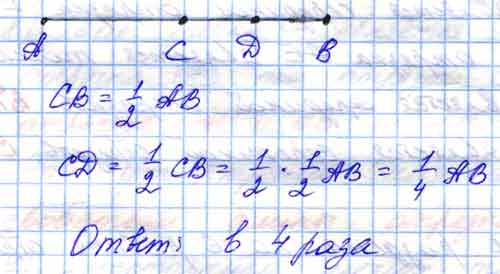 A C D B
CB = 1/2 AB
CD = 1/2 CB = 1/2 · 1/2 AB = 1/4 AB
Ответ: в 4 раза